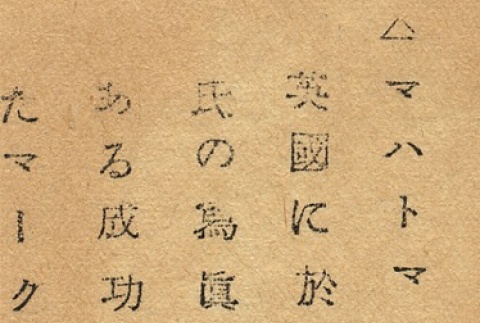 △マハトマ
英國に於
氏の為眞
ある成功
たマーク